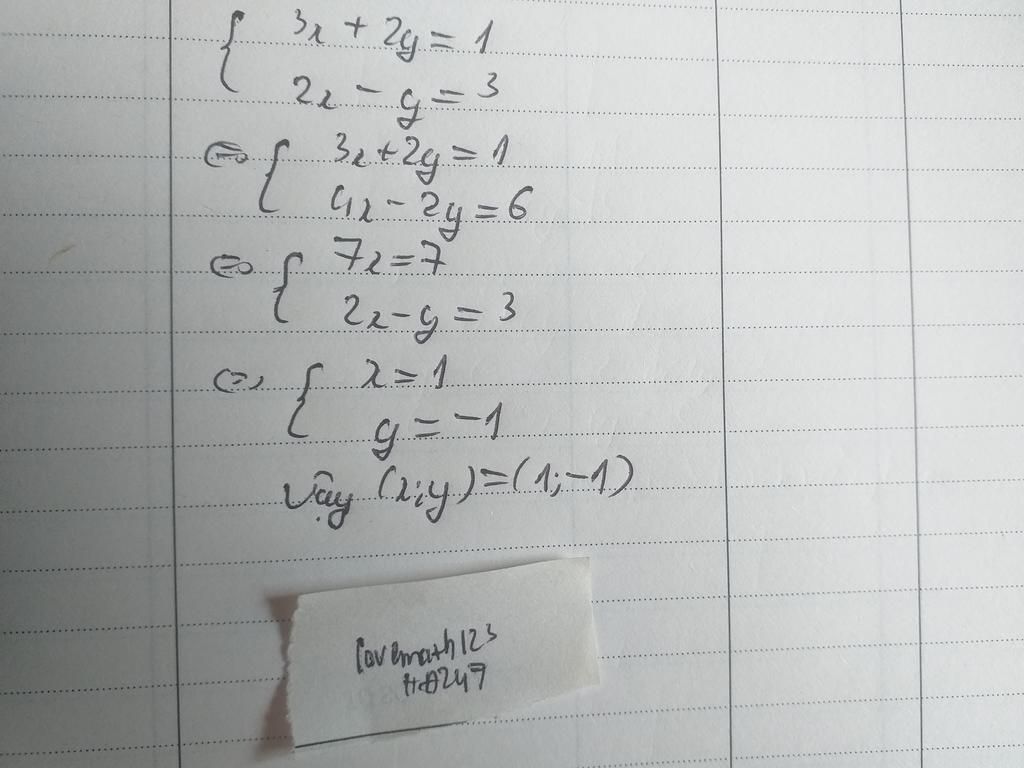 { 3x + 2y = 1
2x - y = 3
⇔ { 3x + 2y = 1
4x - 2y = 6
⇔ { 7x = 7
2x - y = 3
⇔ { x = 1
y = -1
Vậy (x;y) = (1;-1)
lovemath123
H.D247